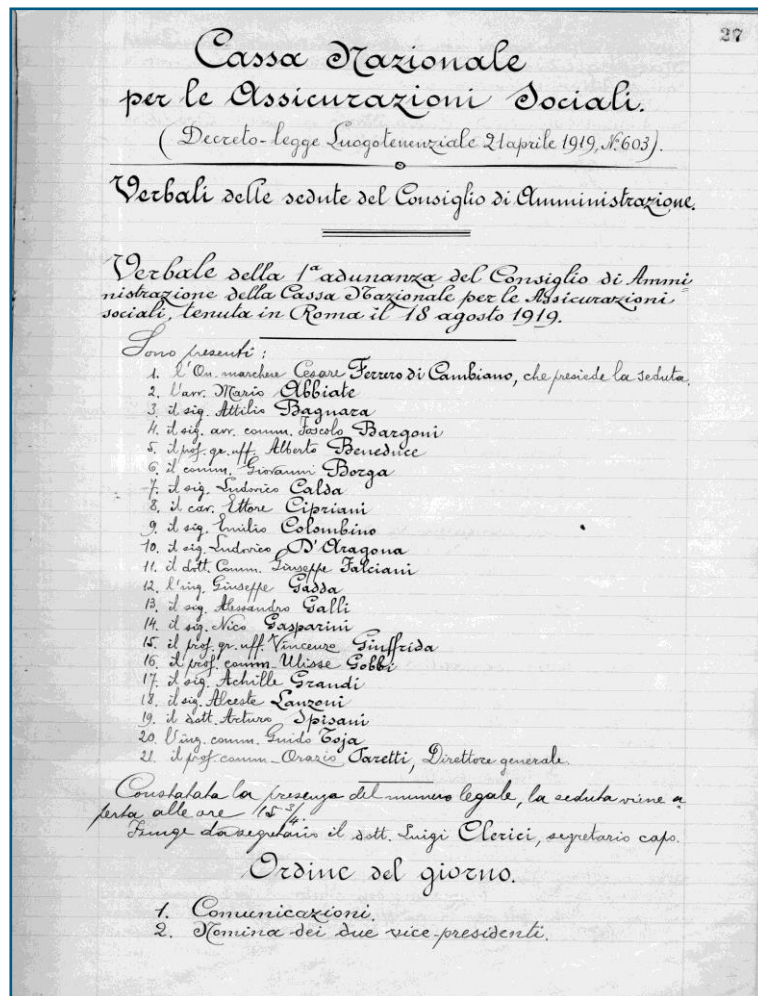 27
Cassa Nazionale
per le Assicurazioni Sociali.
(Decreto-legge Luogotenenziale 21 aprile 1919, N.º 603).
Verbali delle sedute del Consiglio di Amministrazione.
Verbale della 1ª adunanza del Consiglio di Ammi=
nistrazione della Cassa Nazionale per le Assicurazioni
sociali, tenuta in Roma il 18 agosto 1919.
Sono presenti:
1. l'On. marchese Cesare Ferrero di Cambiano, che presiede la seduta.
2. l'avv. Mario Abbiate
3. il sig. Attilio Bagnara
4. il sig. avv. comm. Foscolo Bargoni
5. il prof. gr. uff. Alberto Beneduce
6. il comm. Giovanni Borga
7. il sig. Ludovico Calda
8. il cav. Ettore Cipriani
9. il sig. Emilio Colombino
10. il sig. Ludovico D'Aragona
11. il dott. Comm. Giuseppe Falciani
12. l'ing. Giuseppe Gadda
13. il sig. Alessandro Galli
14. il sig. Nico Gasparini
15. il prof. gr. uff. Vincenzo Giuffrida
16. il prof. comm. Ulisse Gobbi
17. il sig. Achille Grandi
18. il sig. Alceste Lanzoni
19. il dott. Arturo Spisani
20. l'ing. comm. Guido Toja
21. il prof. comm. Orazio Paretti, Direttore generale.
Constatata la presenza del numero legale, la seduta viene a=
perta alle ore 15 3/4.
Funge da segretario il dott. Luigi Clerici, segretario capo.
Ordine del giorno.
1. Comunicazioni.
2. Nomina dei due vice-presidenti.